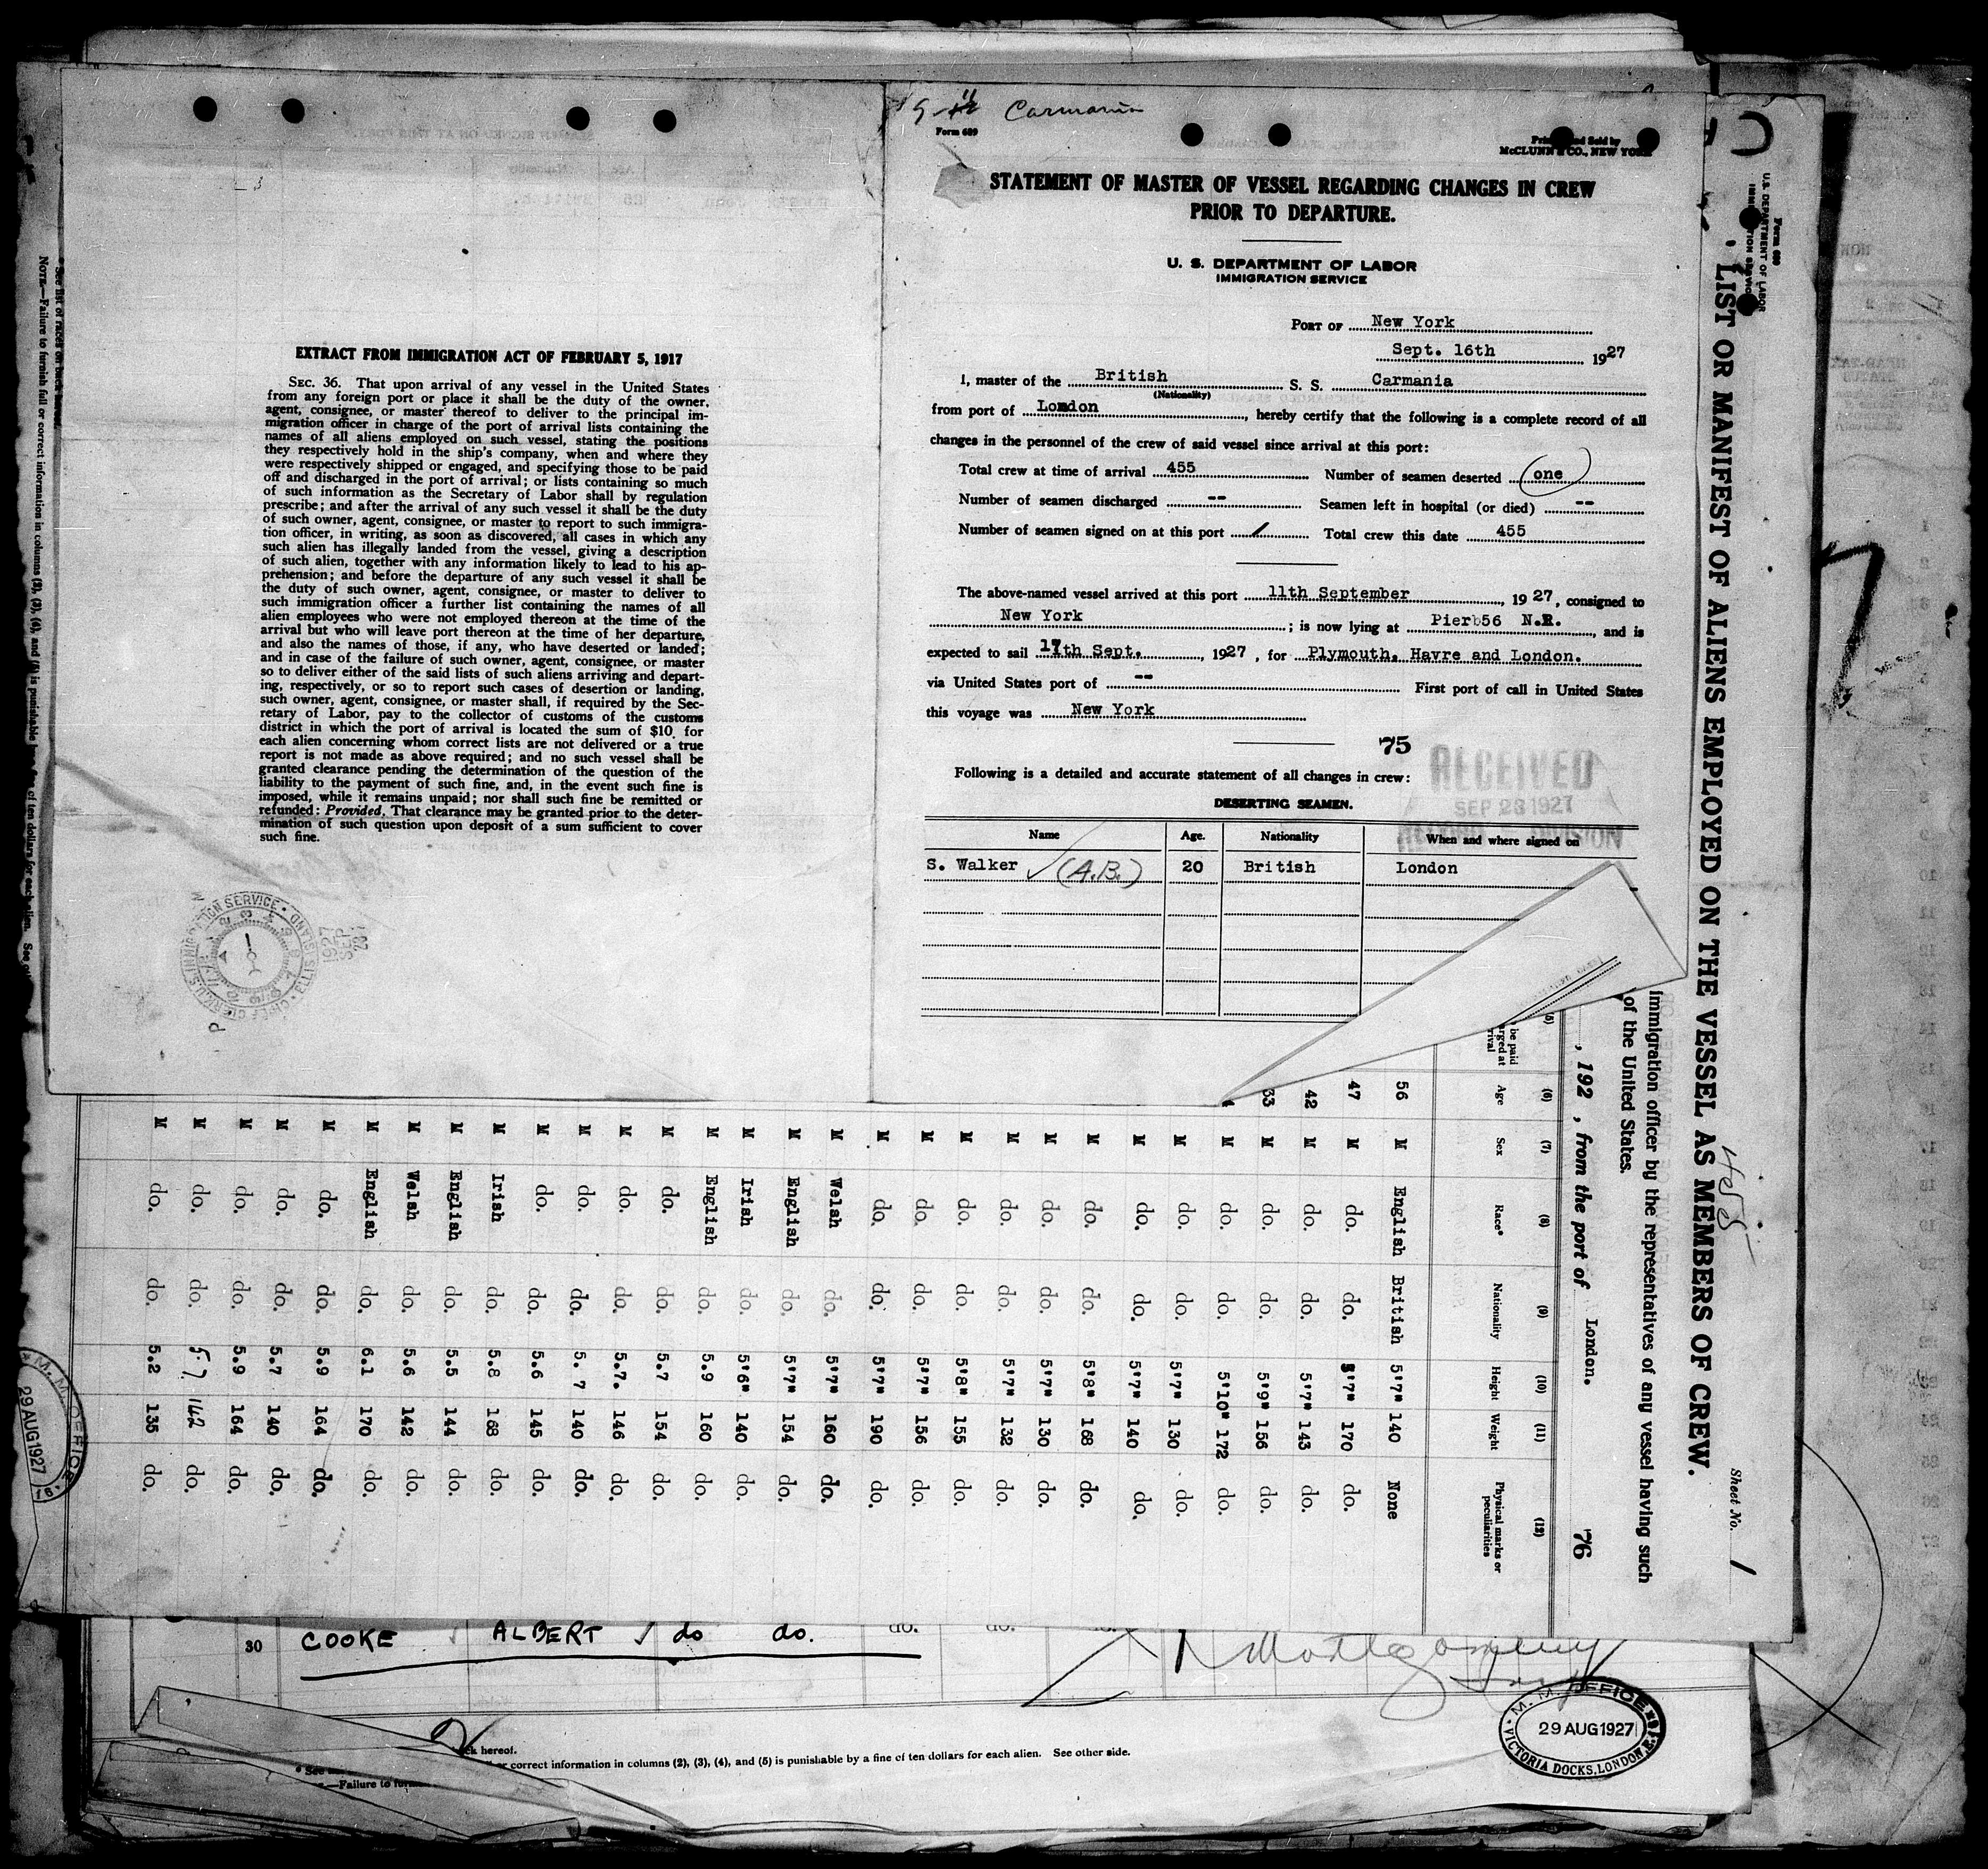 EXTRACT FROM IMMIGRATION ACT OF FEBRUARY 5, 1917
SEC. 36. That upon arrival of any vessel in the United States
from any foreign port or place it shall be the duty of the owner,
agent, consignee, or master thereof to deliver to the principal im-
migration officer in charge of the port of arrival lists containing the
names of all aliens employed on such vessel, stating the positions
they respectively hold in the ship's company, when and where they
were respectively shipped or engaged, and specifying those to be paid
off and discharged in the port of arrival; or lists containing so much
of such information as the Secretary of Labor shall by regulation
prescribe; and after the arrival of any such vessel it shall be the duty
of such owner, agent, consignee, or master to report to such immigra-
tion officer, in writing, as soon as discovered, all cases in which any
such alien has illegally landed from the vessel, giving a description
of such alien, together with any information likely to lead to his ap-
prehension; and before the departure of any such vessel it shall be
the duty of such owner, agent, consignee, or master to deliver to
such immigration officer a further list containing the names of all
alien employees who were not employed thereon at the time of the
arrival but who will leave port thereon at the time of her departure,
and also the names of those, if any, who have deserted or landed;
and in case of the failure of such owner, agent, consignee, or master
so to deliver either of the said lists of such aliens arriving and depart-
ing, respectively, or so to report such cases of desertion or landing,
such owner, agent, consignee, or master shall, if required by the Sec-
retary of Labor, pay to the collector of customs of the customs
district in which the port of arrival is located the sum of $10 for
each alien concerning whom correct lists are not delivered or a true
report is not made as above required; and no such vessel shall be
granted clearance pending the determination of the question of the
liability to the payment of such fine, and, in the event such fine is
imposed, while it remains unpaid; nor shall such fine be remitted or
refunded: Provided, That clearance may be granted prior to the deter-
mination of such question upon deposit of a sum sufficient to cover
such fine.
Carmania
Form 689
McCLUNN & CO., NEW YORK
STATEMENT OF MASTER OF VESSEL REGARDING CHANGES IN CREW
PRIOR TO DEPARTURE.
U. S. DEPARTMENT OF LABOR
IMMIGRATION SERVICE
PORT OF New York
Sept. 16th 1927
I, master of the British S. S. Carmania
(Nationality)
from port of London, hereby certify that the following is a complete record of all
changes in the personnel of the crew of said vessel since arrival at this port:
Total crew at time of arrival 455 Number of seamen deserted one
Number of seamen discharged -- Seamen left in hospital (or died) --
Number of seamen signed on at this port / Total crew this date 455
The above-named vessel arrived at this port 11th September, 1927, consigned to
New York; is now lying at Pier 56 N.R., and is
expected to sail 17th Sept., 1927, for Plymouth, Havre and London.
via United States port of -- First port of call in United States
this voyage was New York
75
Following is a detailed and accurate statement of all changes in crew:
RECEIVED
SEP 23 1927
RECORD DIVISION
DESERTING SEAMEN.
Name Age. Nationality When and where signed on
S. Walker (A.B.) 20 British London
Form 689
U. S. DEPARTMENT OF LABOR
IMMIGRATION SERVICE
LIST OR MANIFEST OF ALIENS EMPLOYED ON THE VESSEL AS MEMBERS OF CREW.
455
Sheet No. 1
immigration officer by the representatives of any vessel having such
of the United States.
, 192 , from the port of London.
76
(5) (6) (7) (8) (9) (10) (11) (12)
Age Sex Race* Nationality Height Weight Physical marks or peculiarities
56 M English British 5'7" 140 None
47 M do. do. 5'7" 170 do.
42 M do. do. 5'7" 143 do.
33 M do. do. 5'9" 156 do.
M do. do. 5'10" 172 do.
M do. do. 5'7" 130 do.
M do. do. 5'7" 140 do.
M do. do. 5'8" 168 do.
M do. do. 5'7" 130 do.
M do. do. 5'7" 132 do.
M do. do. 5'8" 155 do.
M do. do. 5'7" 156 do.
M do. do. 5'7" 190 do.
M Welsh do. 5'7" 160 do.
M English do. 5'7" 154 do.
M Irish do. 5'6" 140 do.
M English do. 5.9 160 do.
M do. do. 5.7 154 do.
M do. do. 5.7. 146 do.
M do. do. 5.7 140 do.
M do. do. 5.6 145 do.
M Irish do. 5.8 168 do.
M English do. 5.5 144 do.
M Welsh do. 5.6 142 do.
M English do. 6.1 170 do.
M do. do. 5.9 164 do.
M do. do. 5.7 140 do.
M do. do. 5.9 164 do.
M do. do. 5.7 142 do.
M do. do. 5.2 135 do.
* See list of races on back hereof.
NOTE.—Failure to furnish full or correct information in columns (2), (3), (4), and (5) is punishable by a fine of ten dollars for each alien. See
M. M. OFFICE
29 AUG 1927
30 COOKE ALBERT do do. do. do.
Montgomery
hereof.
correct information in columns (2), (3), (4), and (5) is punishable by a fine of ten dollars for each alien. See other side.
—Failure to
M. M. OFFICE
29 AUG 1927
VICTORIA DOCKS, LONDON, E.